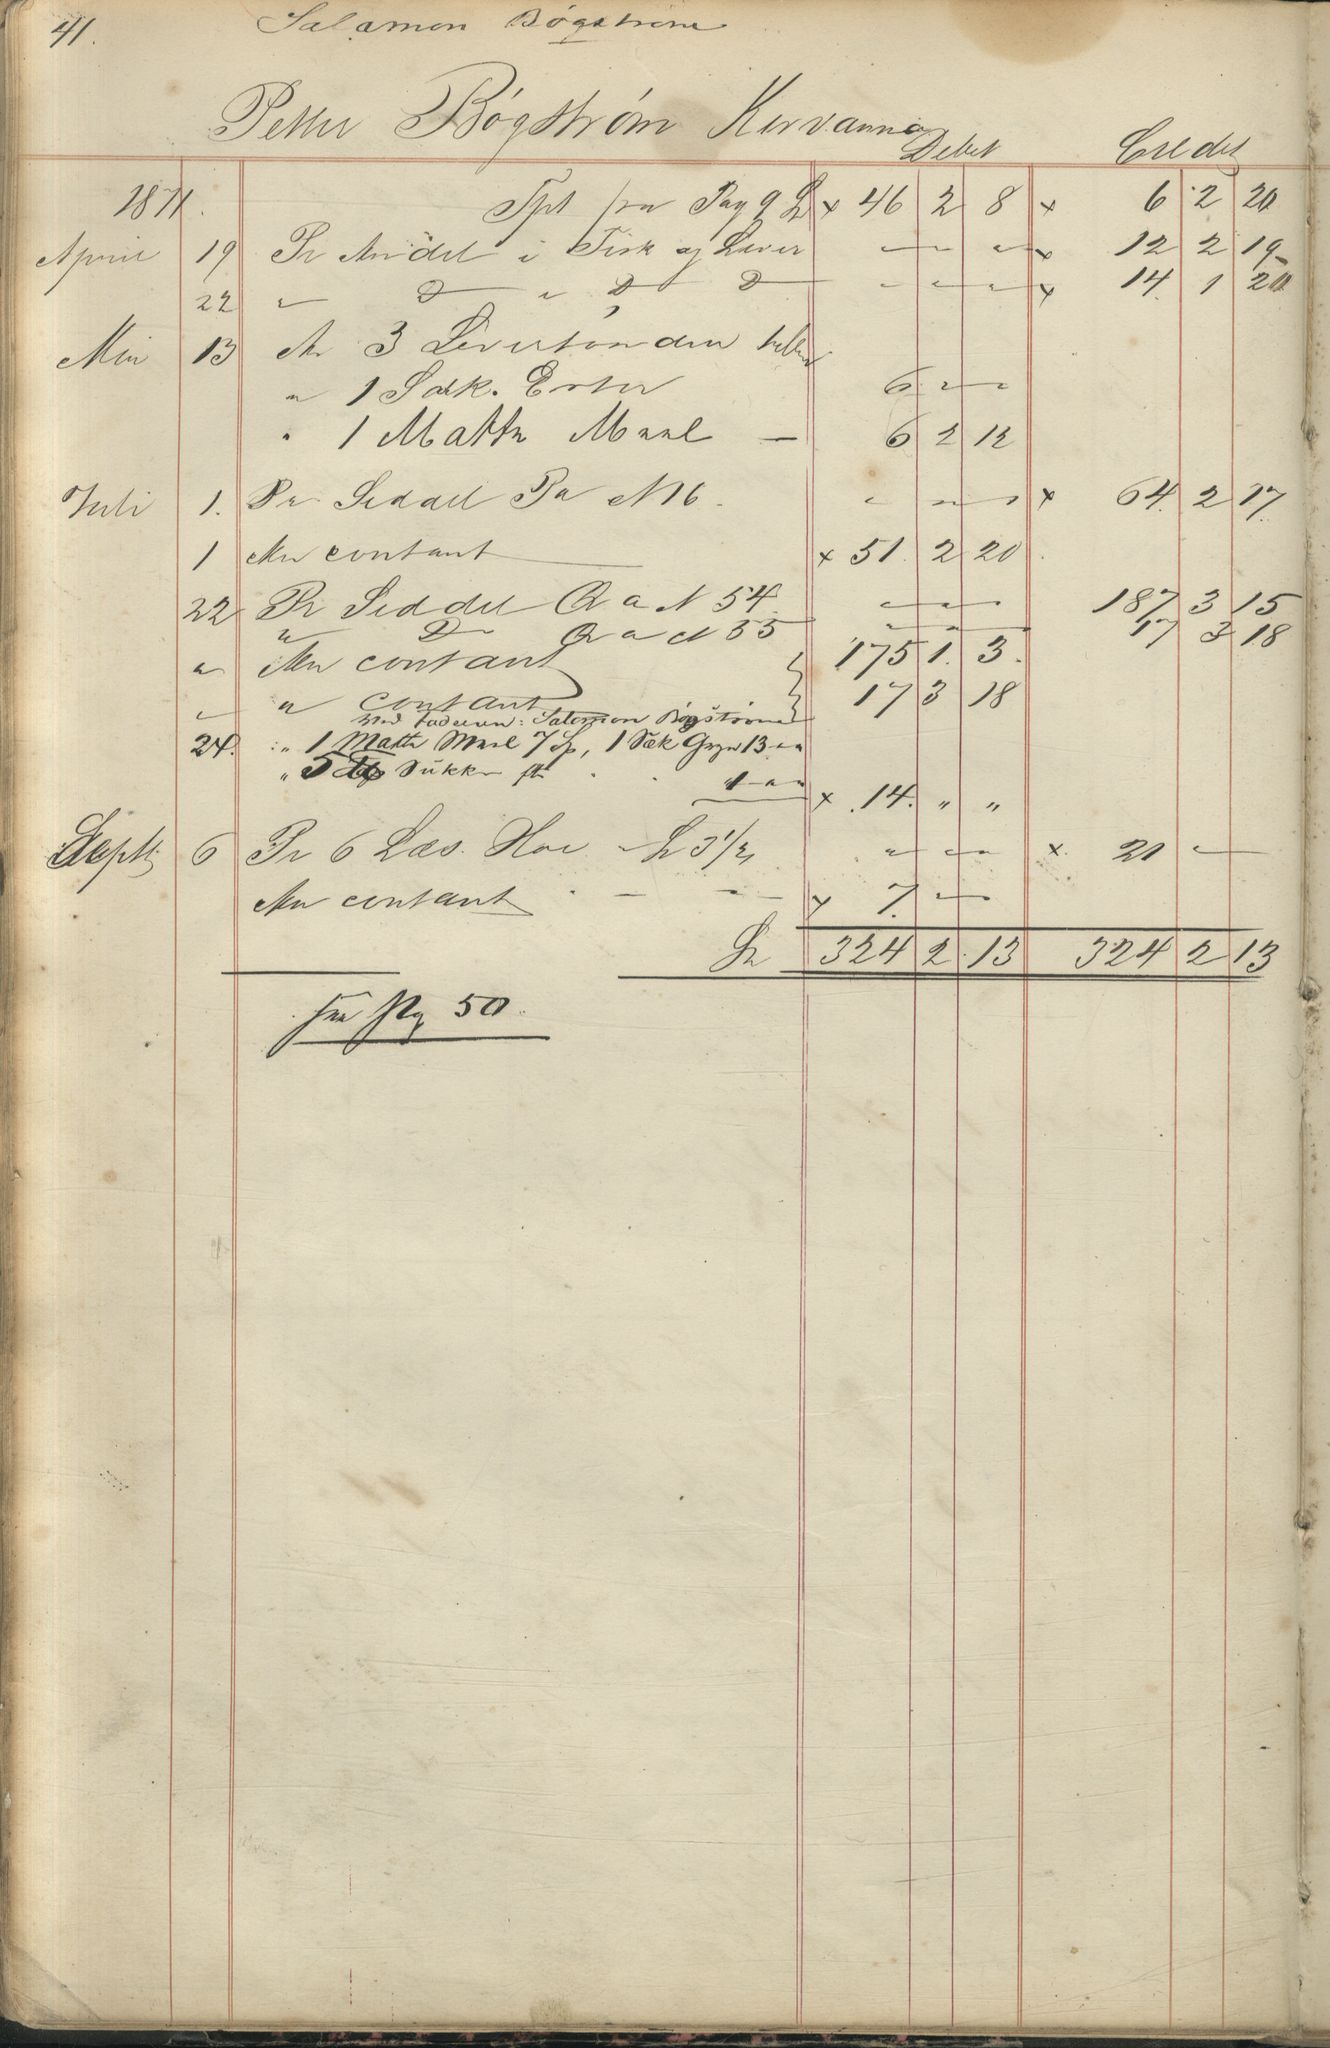 41. Salamon Bøgstrøm
Petter Bøgstrøm Kervanna
Debet Credit
1871. Tpt fra Pag 9 × 46 2 8 × 6 2 20
April 19 Pr Andel i Fisk og Lever " " " × 12 2 19
22 " D " D D " " " × 14. 1 20
Mai 13 An 3 Levertønder
" 1 Sæk. Erter 6 " "
" 1 Matte Meel — 6 2 12
Juli 1. Pr Seddel Pa N 16. " " " × 64. 2 17.
1 An contant × 51. 2 20
22 Pr Seddel Qa N 54. " " 187 3 15
" D Qa N 55 " " 17 3 18
" An contant 175 1. 3.
" " contant 17 3 18
ved Faderen: Salomon Bøgstrøm
24. " 1 Matte Meel 7 Sp, 1 Sæk Gryn 13 " "
" 5 Sukker 1 " " × 14. " "
Septb 6 Pr 6 Læs. Høe 3 1/2 " " " × 21 "
An contant - - × 7. "
324 2 13 324 2 13
pag 50.